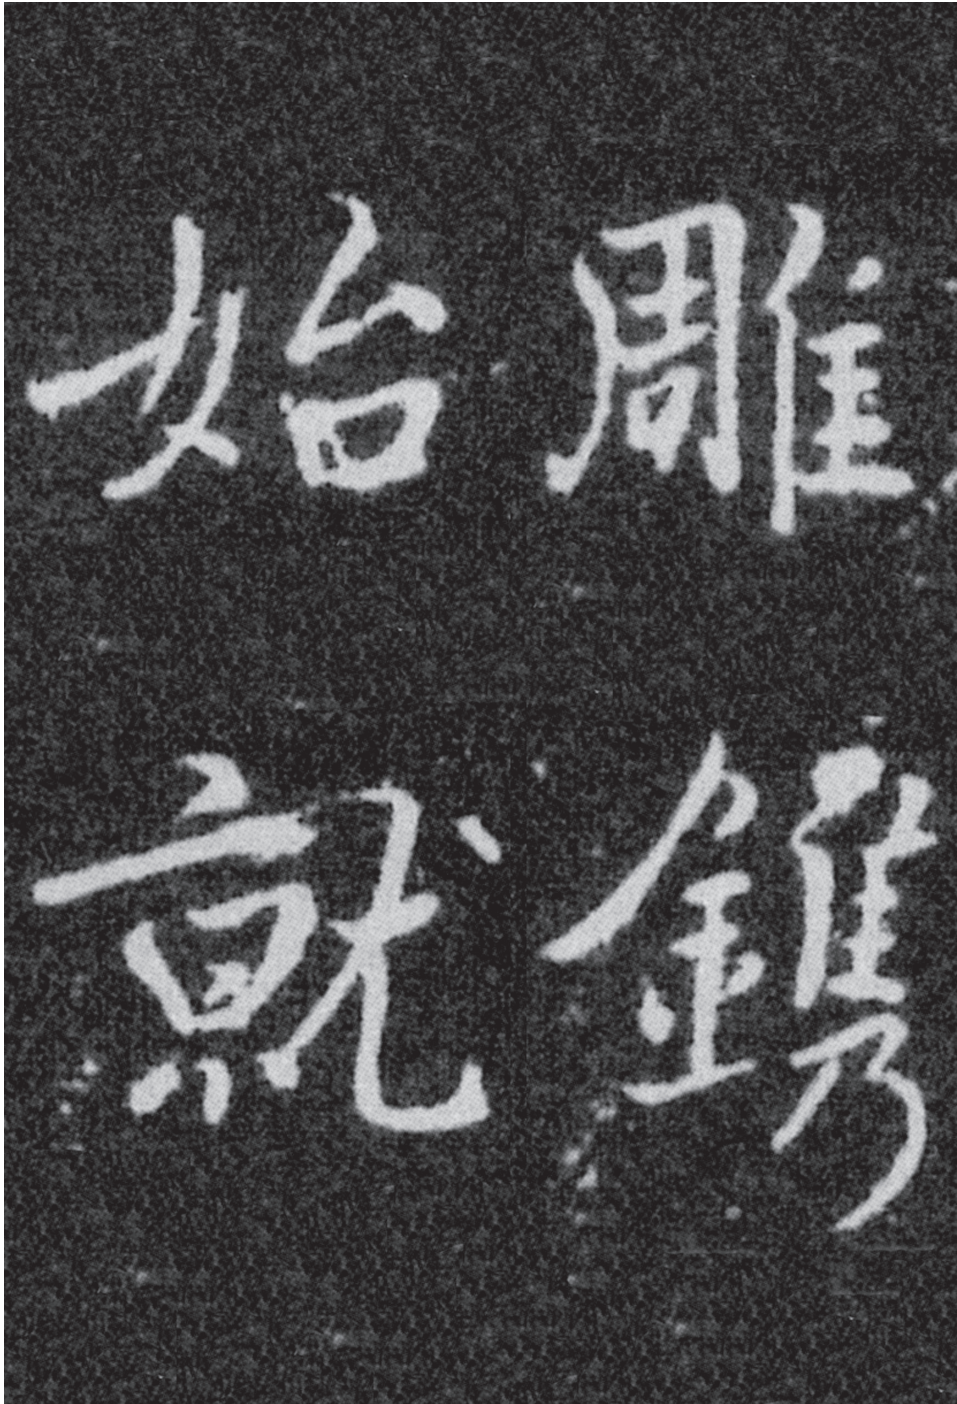 雕鐫
始就